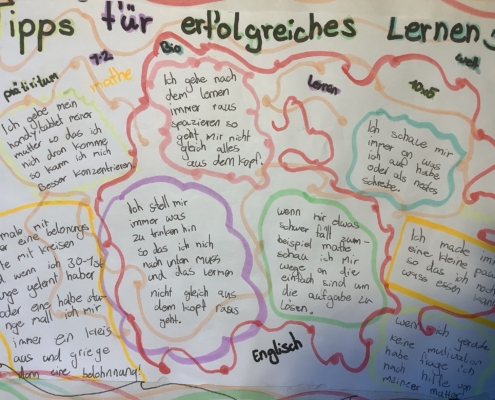 Tipps für erfolgreiches Lernen:
7-2
Bio
präteritum
mathe
Lernen
10x5
Ich gebe mein
handy/tablet meiner
mutter so das ich
nich dran komme
so kann ich mich
Besser konzentrieren.
Ich gehe nach
dem lernen
immer raus
spazieren so
geht mir nicht
gleich alles
aus dem kopf.
Ich schaue mir
immer an was
ich auf habe
oder als nästes
schreibe.
mit
eine belonungs
mit kreisen
wenn ich 30-
gelernt habe
oder eine habe
mall ich mir
immer ein kreis
aus und griege
dann eine belohnnung!
Ich stell mir
immer was
zu trinken hin
so das ich nich
nach unten muss
und das lernen
nicht gleich aus
dem kopf raus
geht.
wenn mir etwas
schwer fält zum-
beispiel mathe
schau ich mir
wege an die
einfach sind um
die aufgabe zu
lösen.
Ich mache
eine kleine
so das ich noch
was essen
wenn ich gerade
keine motivation
habe frage ich
nach hilfe von
meiner mutter!
Englisch